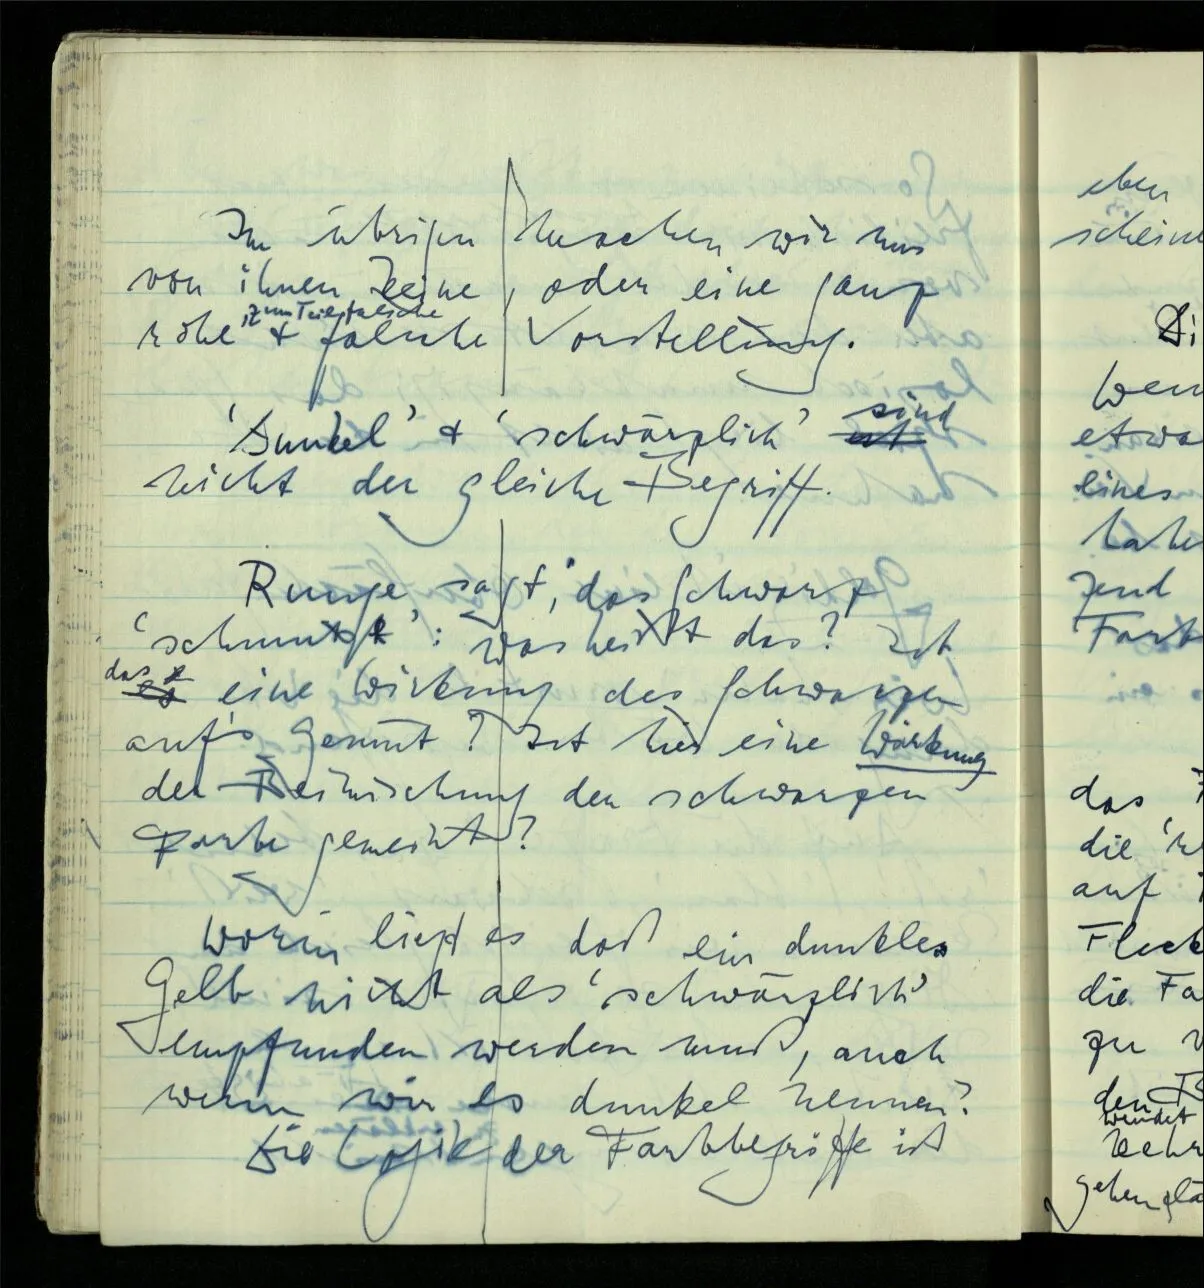 Im übrigen machen wir uns
von ihnen keine, oder eine ganz
zum Teil falsche
rohe & falsche Vorstellung.
'Dunkel' & 'schwärzlich' ist sind
nicht der gleiche Begriff.
Runge sagt, das Schwarz
'schmutzt': was heißt das? Ist
das es eine Wirkung des Schwarzen
auf's Gemüt? Ist hier eine Wirkung
der Beimischung der schwarzen
Farbe gemeint?
Worin liegt es daß ein dunkles
Gelb nicht als 'schwärzlich'
empfunden werden muß, auch
wenn wir es dunkel nennen?
Die Logik der Farbbegriffe ist
eben
scheine
Di
Wen
etwa
eines
habe
Farb
das F
die
auf
Fleck
die Fa
zu
den B
wendet